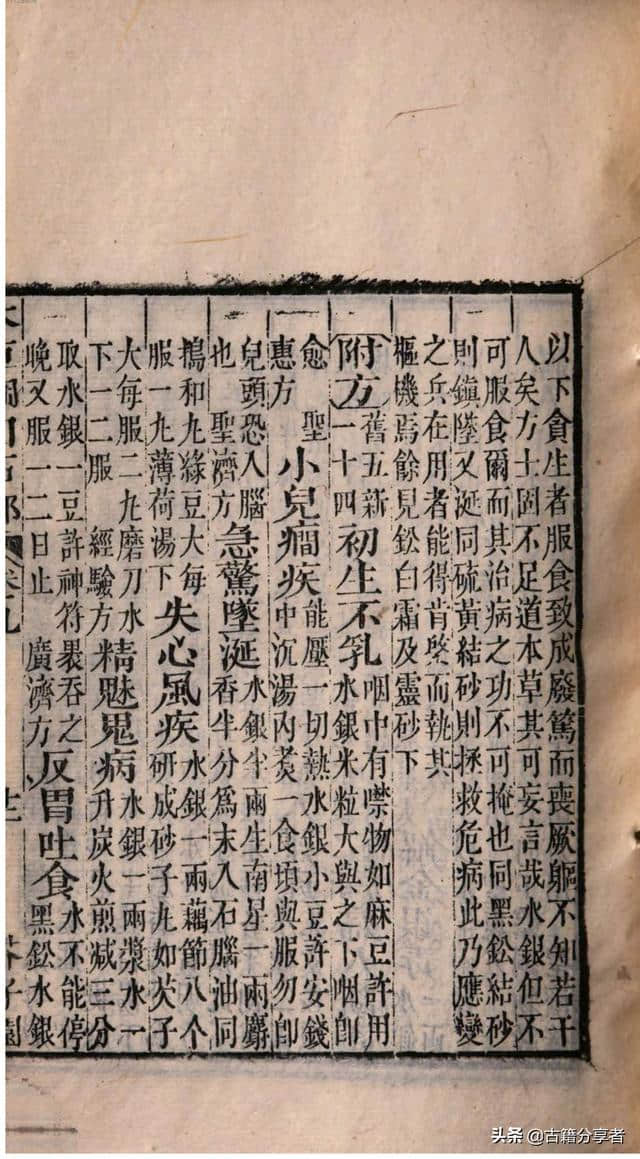 以下貪生者服食致成廢篤而喪厥軀不知若干
人矣方士固不足道本草其可妄言哉水銀但不
可服食爾而其治病之功不可掩也同黑鈆結砂
則鎮墜又涎同硫黃結砂則拯救危病此乃應變
之兵在用者能得肯綮而執其
樞機焉餘見鈆白霜及靈砂下
附方舊五新一十四初生不乳咽中有噤物如麻豆許用水銀米粒大與之下咽卽
愈聖惠方小兒癇疾能壓一切熱水銀小豆許安錢中沉湯內煑一食頃與服勿卬
兒頭恐入腦也聖濟方急驚墜涎水銀半兩生南星一兩麝香半分爲末入石腦油同
擣和丸綠豆大每服一丸薄荷湯下失心風疾水銀一兩藕節八个研成砂子丸如芡子
大每服二丸磨刀水下一二服經驗方精魅鬼病水銀一兩漿水一升炭火煎減三分
取水銀一豆許神符裹吞之晚又服一二日止廣濟方反胃吐食水不能停黑鈆水銀
頭条 @古籍分享者